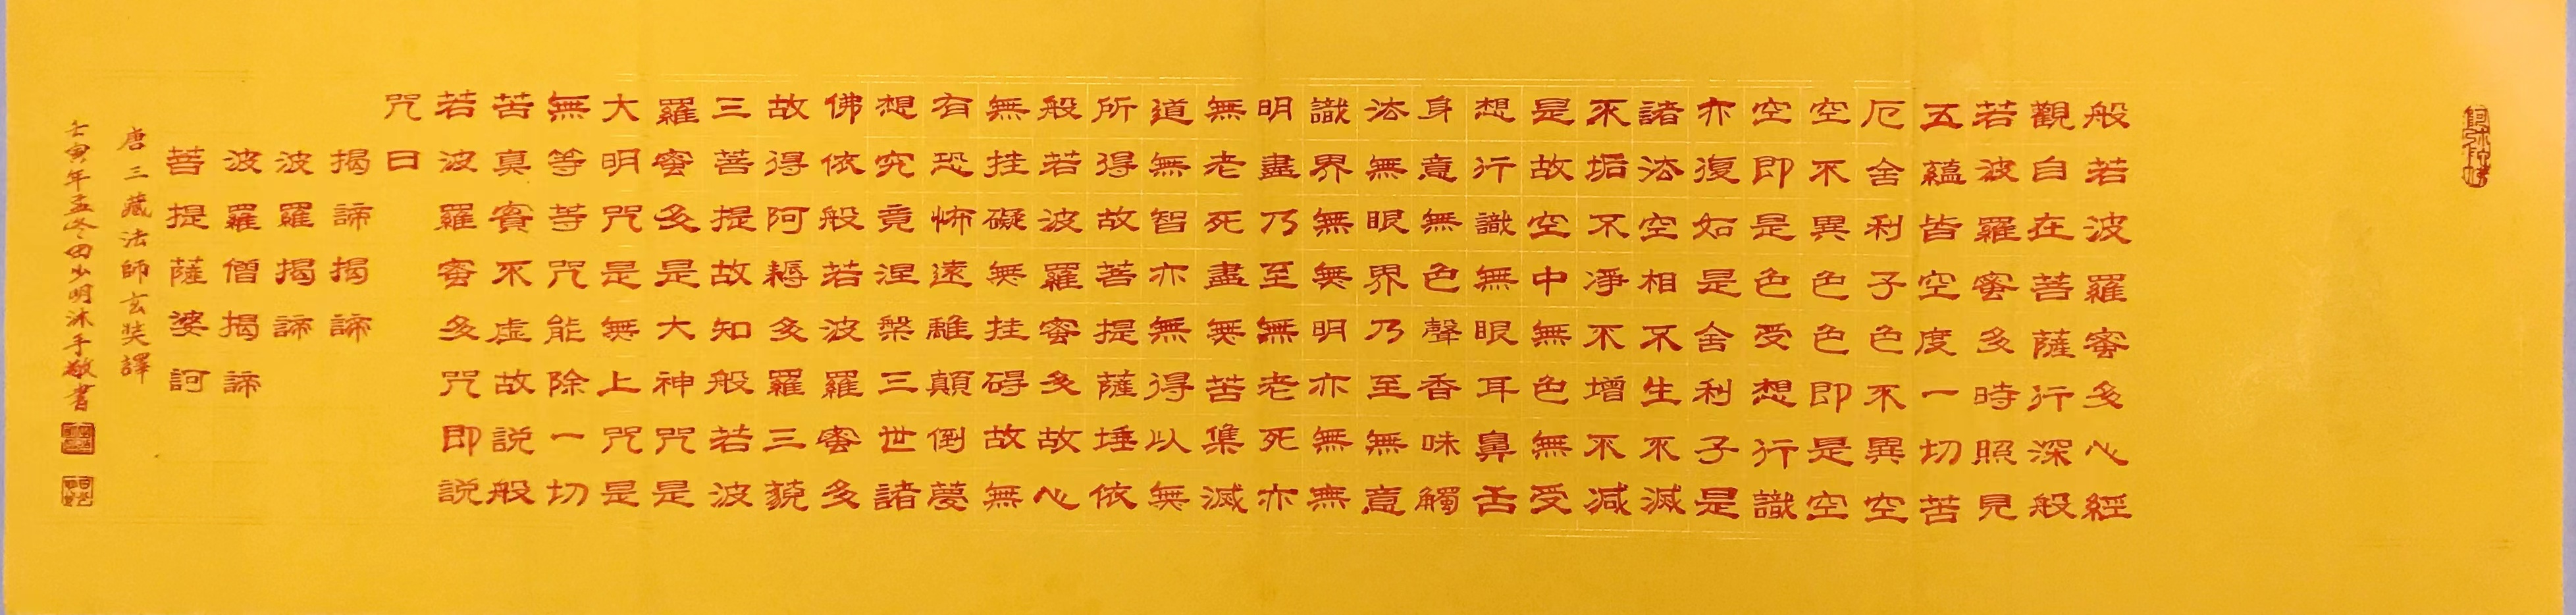 般若波羅蜜多心經
觀自在菩薩行深般
若波羅蜜多時照見
五蘊皆空度一切苦
厄舍利子色不異空
空不異色色即是空
空即是色受想行識
亦復如是舍利子是
諸法空相不生不滅
不垢不淨不增不減
是故空中無色無受
想行識無眼耳鼻舌
身意無色聲香味觸
法無眼界乃至無意
識界無無明亦無無
明盡乃至無老死亦
無老死盡無苦集滅
道無智亦無得以無
所得故菩提薩埵依
般若波羅蜜多故心
無挂礙無挂碍故無
有恐怖遠離顛倒夢
想究竟涅槃三世諸
佛依般若波羅蜜多
故得阿耨多羅三藐
三菩提故知般若波
羅蜜多是大神咒是
大明咒是無上咒是
無等等咒能除一切
苦真實不虛故説般
若波羅蜜多咒即説
咒曰
揭諦揭諦
波羅揭諦
波羅僧揭諦
菩提薩婆訶
唐三藏法師玄奘譯
壬寅年孟冬田少明沐手敬書